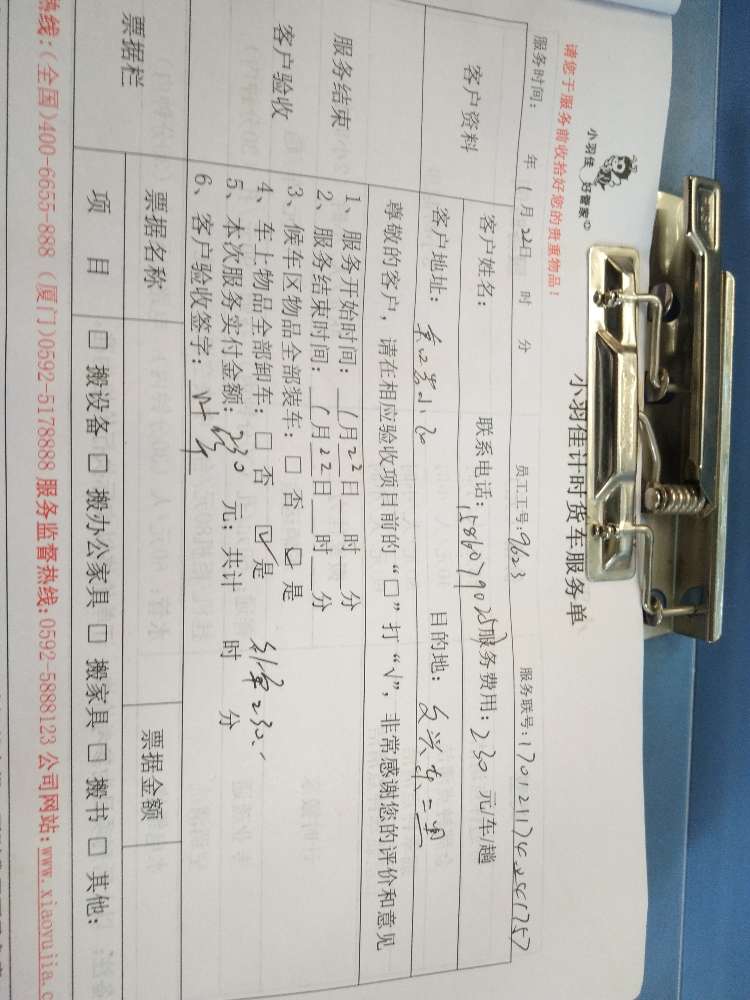 小羽佳 好管家
请您于服务前收拾好您的贵重物品！
小羽佳计时货车服务单
服务时间： 年 1月 22日 时 分 员工工号：9623 服务联号：
客户资料
客户姓名： 联系电话： 服务费用：230 元/车/趟
客户地址： 目的地：
尊敬的客户，请在相应验收项目前的“□”打“√”，非常感谢您的评价和意见
服务结束
客户验收
1、服务开始时间：1月22日 时 分
2、服务结束时间：1月22日 时 分
3、候车区物品全部装车：□ 否 ☑ 是
4、车上物品全部卸车：□ 否 ☑ 是
5、本次服务实付金额：230 元；共计 时 分
6、客户验收签字：
票据栏
票据名称 票据金额
项 目 □ 搬设备 □ 搬办公家具 □ 搬家具 □ 搬书 □ 其他：
热线：(全国)400-6655-888 (厦门)0592-5178888 服务监督热线：0592-5888123 公司网站：www.xiaoyujia.c